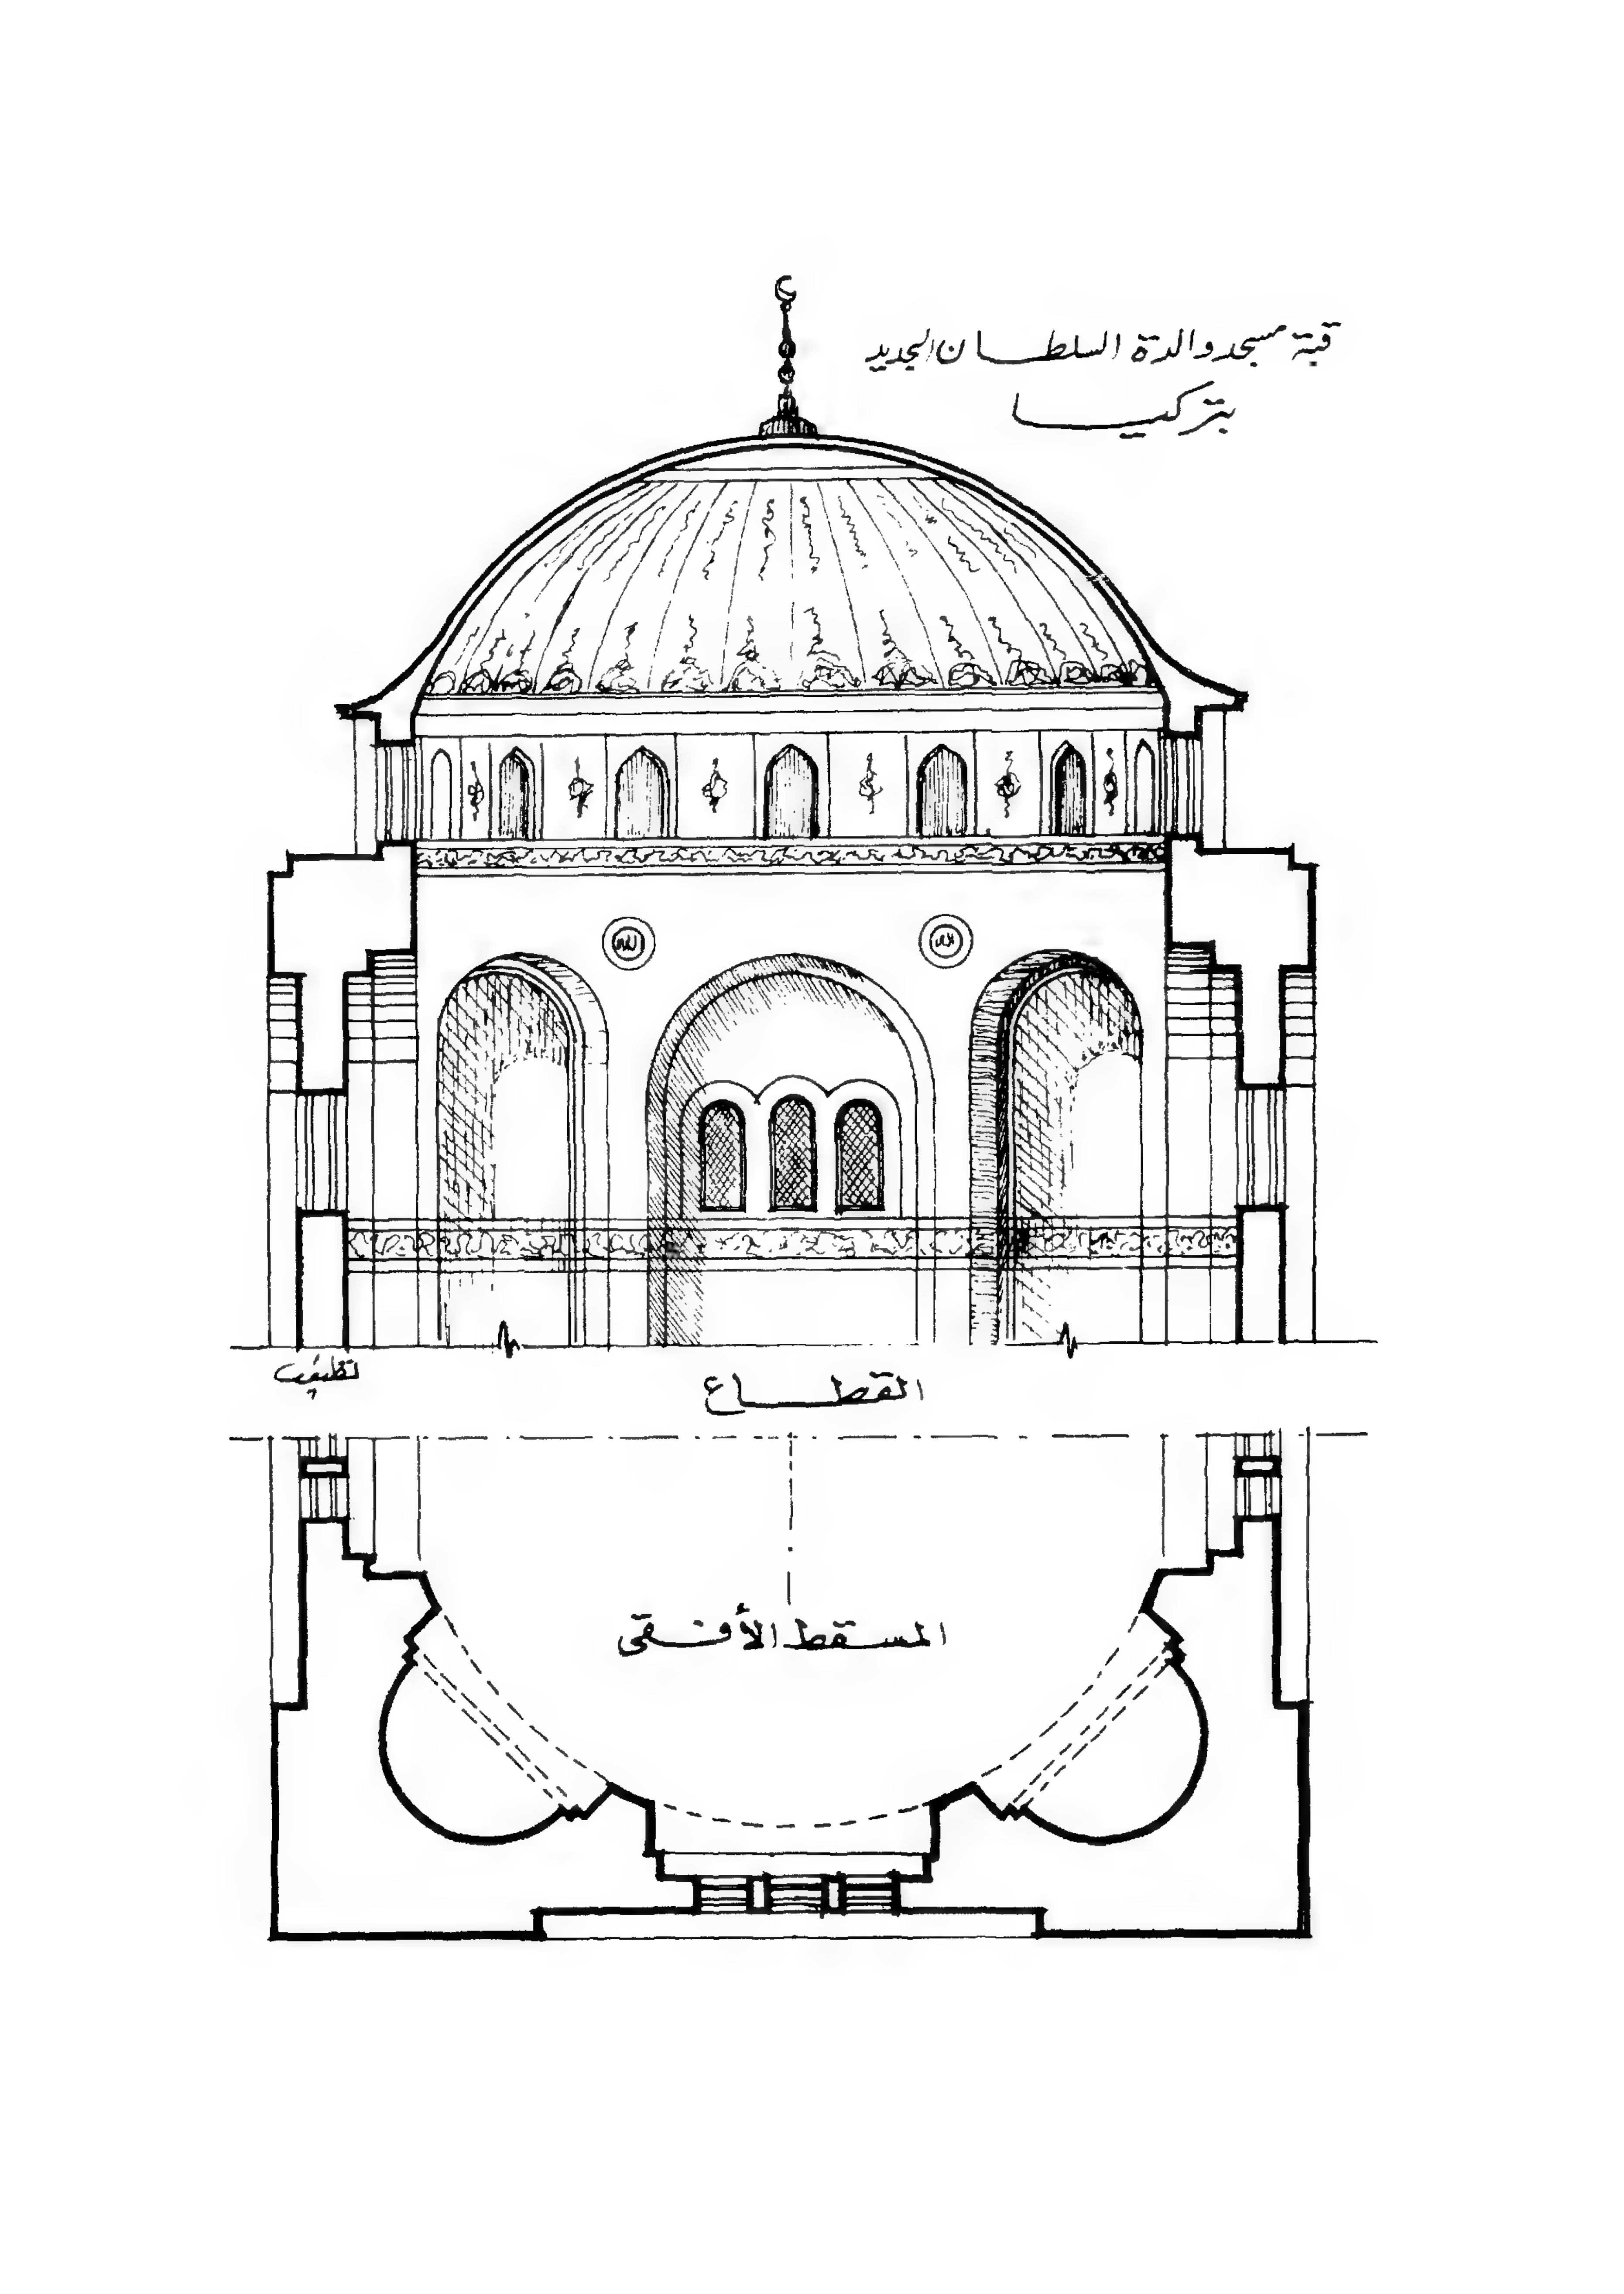 قبة مسجد والدة السلطان الجديد
بتركيا
الله
الله
القطاع
المسقط الأفقى